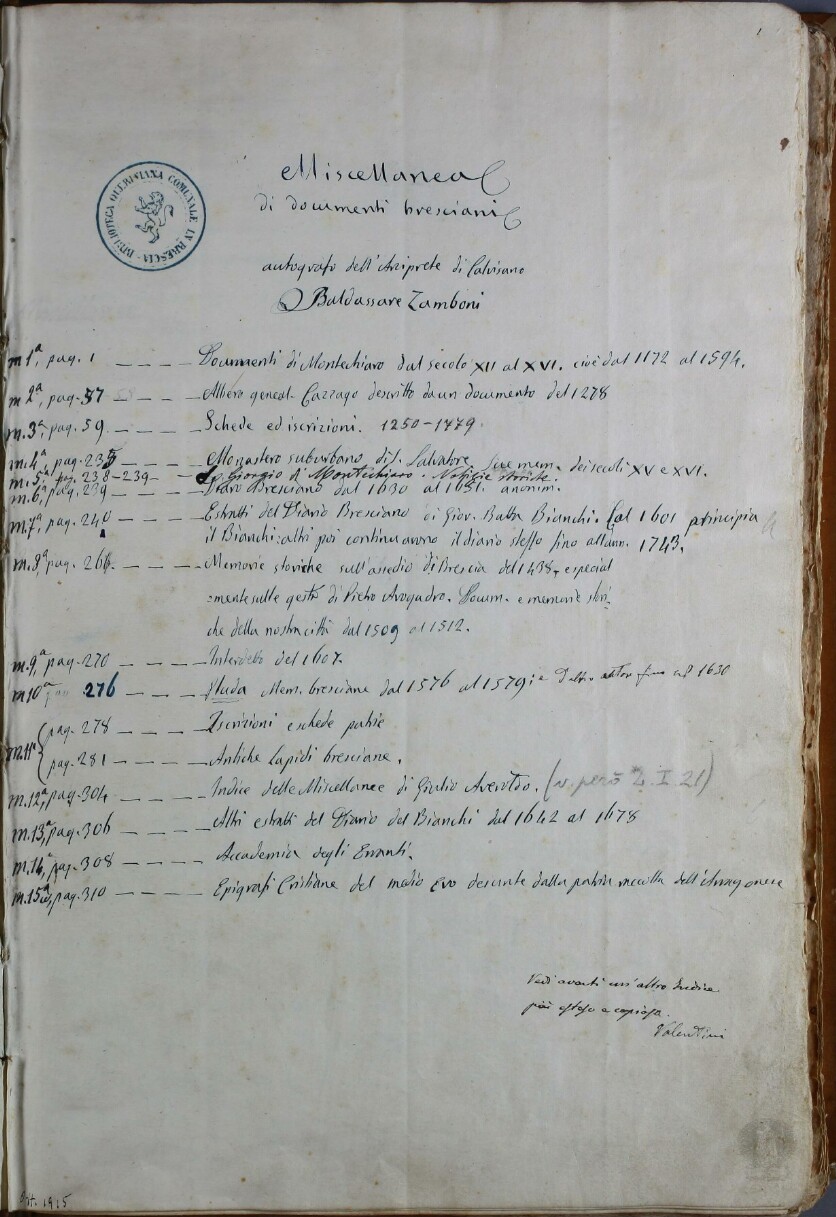 1
Miscellanea
di documenti bresciani
BIBLIOTECA QUERINIANA COMUNALE IN BRESCIA
autografo dell'Arciprete di Calvisano
Baldassare Zamboni
m 1ª, pag. 1 — — — — Documenti di Montechiaro dal secolo XII al XVI. cioè dal 1172 al 1594.
m 2ª, pag. 57 — — — — Albero geneal. Cazzago descritto da un documento del 1278
m. 3ª, pag. 59. — — — — Schede ed iscrizioni. 1250-1479.
m. 4ª, pag. 235 — — — — Monastero suburbano di S. Salvatore. Sue mem. dei secoli XV e XVI.
m. 5ª, pag. 238-239 — S. Giorgio di Montechiaro. Notizie storiche.
m. 6ª, pag. 239 — — — Diaro Bresciano dal 1630 al 1651. anonim.
m. 7ª, pag. 240 — — — — Estratti del Diario Bresciano di Giov. Batta Bianchi. (al 1601 principia
il Bianchi: altri poi continuarono il diario stesso fino all'ann. 1743.
m. 8ª, pag. 266. — — — — Memorie storiche sull'assedio di Brescia del 1438, e special
=mente sulle gesta di Pietro Avogadro. Docum. e memorie stori-
che della nostra città dal 1509 al 1512.
m. 9ª, pag. 270 — — — — Interdetto del 1607.
m 10ª pag 276 — — — — Nuda Mem. bresciane dal 1576 al 1579; e d'altro autor fino al 1630
m. 11ª { pag. 278 — — — — Iscrizioni e schede patrie
pag. 281 — — — — Antiche lapidi bresciane.
m. 12ª, pag. 304 — — — — Indice delle Miscellanee di Giulio Averoldo. (v. però Z. I. 21)
m. 13ª, pag. 306 — — — — Altri estratti del Diario del Bianchi dal 1642 al 1678
m. 14ª, pag. 308 — — — — Accademia degli Erranti.
m. 15ª, pag. 310 — — — — Epigrafi Cristiane del medio Evo desunte dalla patria raccolta dell'Aragonese
Vedi avanti un'altro Indice
più esteso e copioso.
Valentini
1915